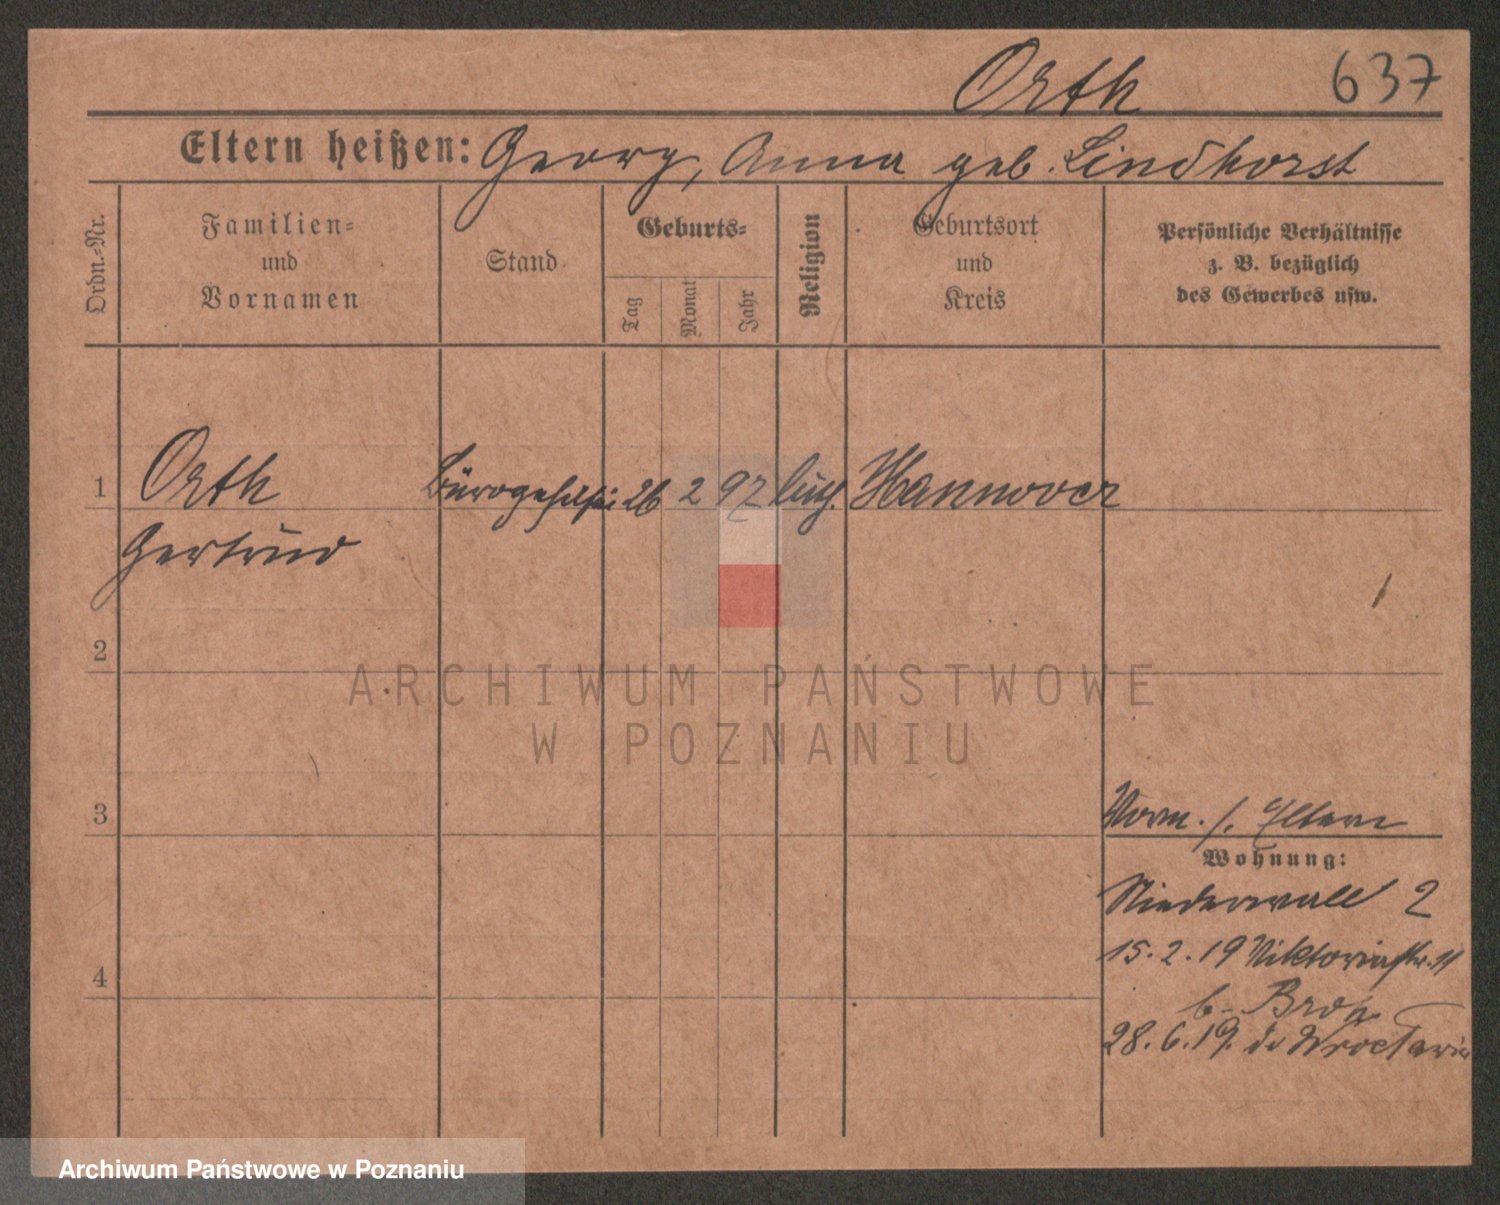 Orth 637
Eltern heißen: Georg, Anna geb. Lindhorst
Ordn.-Nr.
Familien-
und
Vornamen
Stand
Geburts-
Tag
Monat
Jahr
Religion
Geburtsort
und
Kreis
Persönliche Verhältnisse
z. B. bezüglich
des Gewerbes usw.
1 Orth 26 2 97 Hannover
Gertrud
2
ARCHIWUM PAŃSTWOWE
W POZNANIU
3
Vorm. s. Eltern
Wohnung:
Niederwall 2
15. 2. 19 Viktoriastr. 11
4
b.
28. 6. 19. do Wrocławia
Archiwum Państwowe w Poznaniu